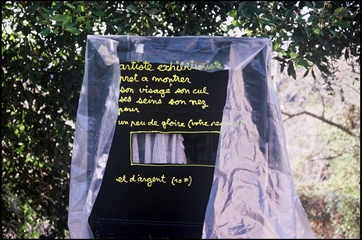 artiste exhibitionniste
pret a montrer
son visage son cul
ses seins son nez
pour
un peu de gloire (votre
et d'argent (10 F)